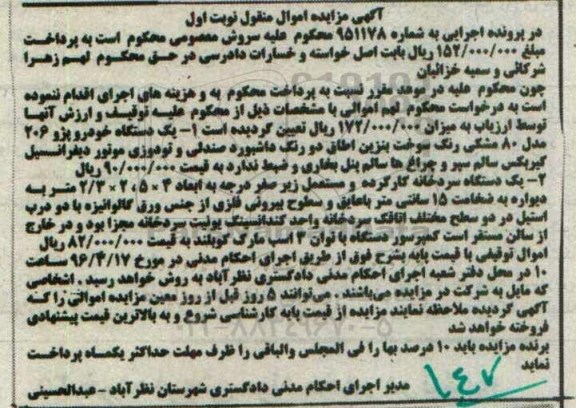 آگهی مزایده اموال منقول نوبت اول
در پرونده اجرایی به شماره ۹۵۱۱۷۸ محکوم علیه سروش معصومی محکوم است به پرداخت
مبلغ ۱۵۲/۰۰۰/۰۰۰ ریال بابت اصل خواسته و خسارات دادرسی در حق محکوم لهم زهرا
شرکائی و سمیه خزائیان
چون محکوم علیه در موعد مقرر نسبت به پرداخت محکوم به و هزینه های اجرای اقدام ننموده
است به درخواست محکوم لهم اموالی با مشخصات ذیل از محکوم علیه توقیف و ارزش آنها
توسط ارزیاب به میزان ۱۷۲/۰۰۰/۰۰۰ ریال تعیین گردیده است ۱- یک دستگاه خودرو پژو ۲۰۶
مدل ۸۰ مشکی رنگ سوخت بنزین اطاق دو رنگ داشبورد صندلی و تودوزی موتور دیفرانسیل
گیربکس سالم سپر و چراغ ها سالم پنل بخاری و ضبط ندارد به قیمت ۹۰/۰۰۰/۰۰۰ ریال
۲- یک دستگاه سردخانه کارکرده و مستعمل زیر صفر درجه به ابعاد ۳ × ۲/۳ × ۲،۵ متر به
دیواره به ضخامت ۱۵ سانتی متر باعایق و سطوح بیرونی فلزی از جنس ورق گالوانیزه با دو درب
استیل در دو سطح مختلف اتاقک سردخانه واحد کندانسینگ یونیت سردخانه مجزا بود و در خارج
از سالن مستقر است کمپرسور دستگاه با توان ۳ اسب مارک کوپلند به قیمت ۸۲/۰۰۰/۰۰۰ ریال
اموال توقیفی با قیمت پایه بشرح فوق از طریق اجرای احکام مدنی در مورخ ۹۶/۴/۱۷ ساعت
۱۰ در محل دفتر شعبه اجرای احکام مدنی دادگستری نظرآباد به روش خواهد رسید . اشخاصی
که مایل به شرکت در مزایده می‌باشند . می‌توانند ۵ روز قبل از روز معین مزایده اموالی را که
آگهی گردیده ملاحظه نمایند مزایده از قیمت پایه کارشناسی شروع و به بالاترین قیمت پیشنهادی
فروخته خواهد شد
برنده مزایده باید ۱۰ درصد بها را فی المجلس والباقی را ظرف مهلت حداکثر یکماه پرداخت
نماید
مدیر اجرای احکام مدنی دادگستری شهرستان نظرآباد - عبدالحسینی
۱۴۷